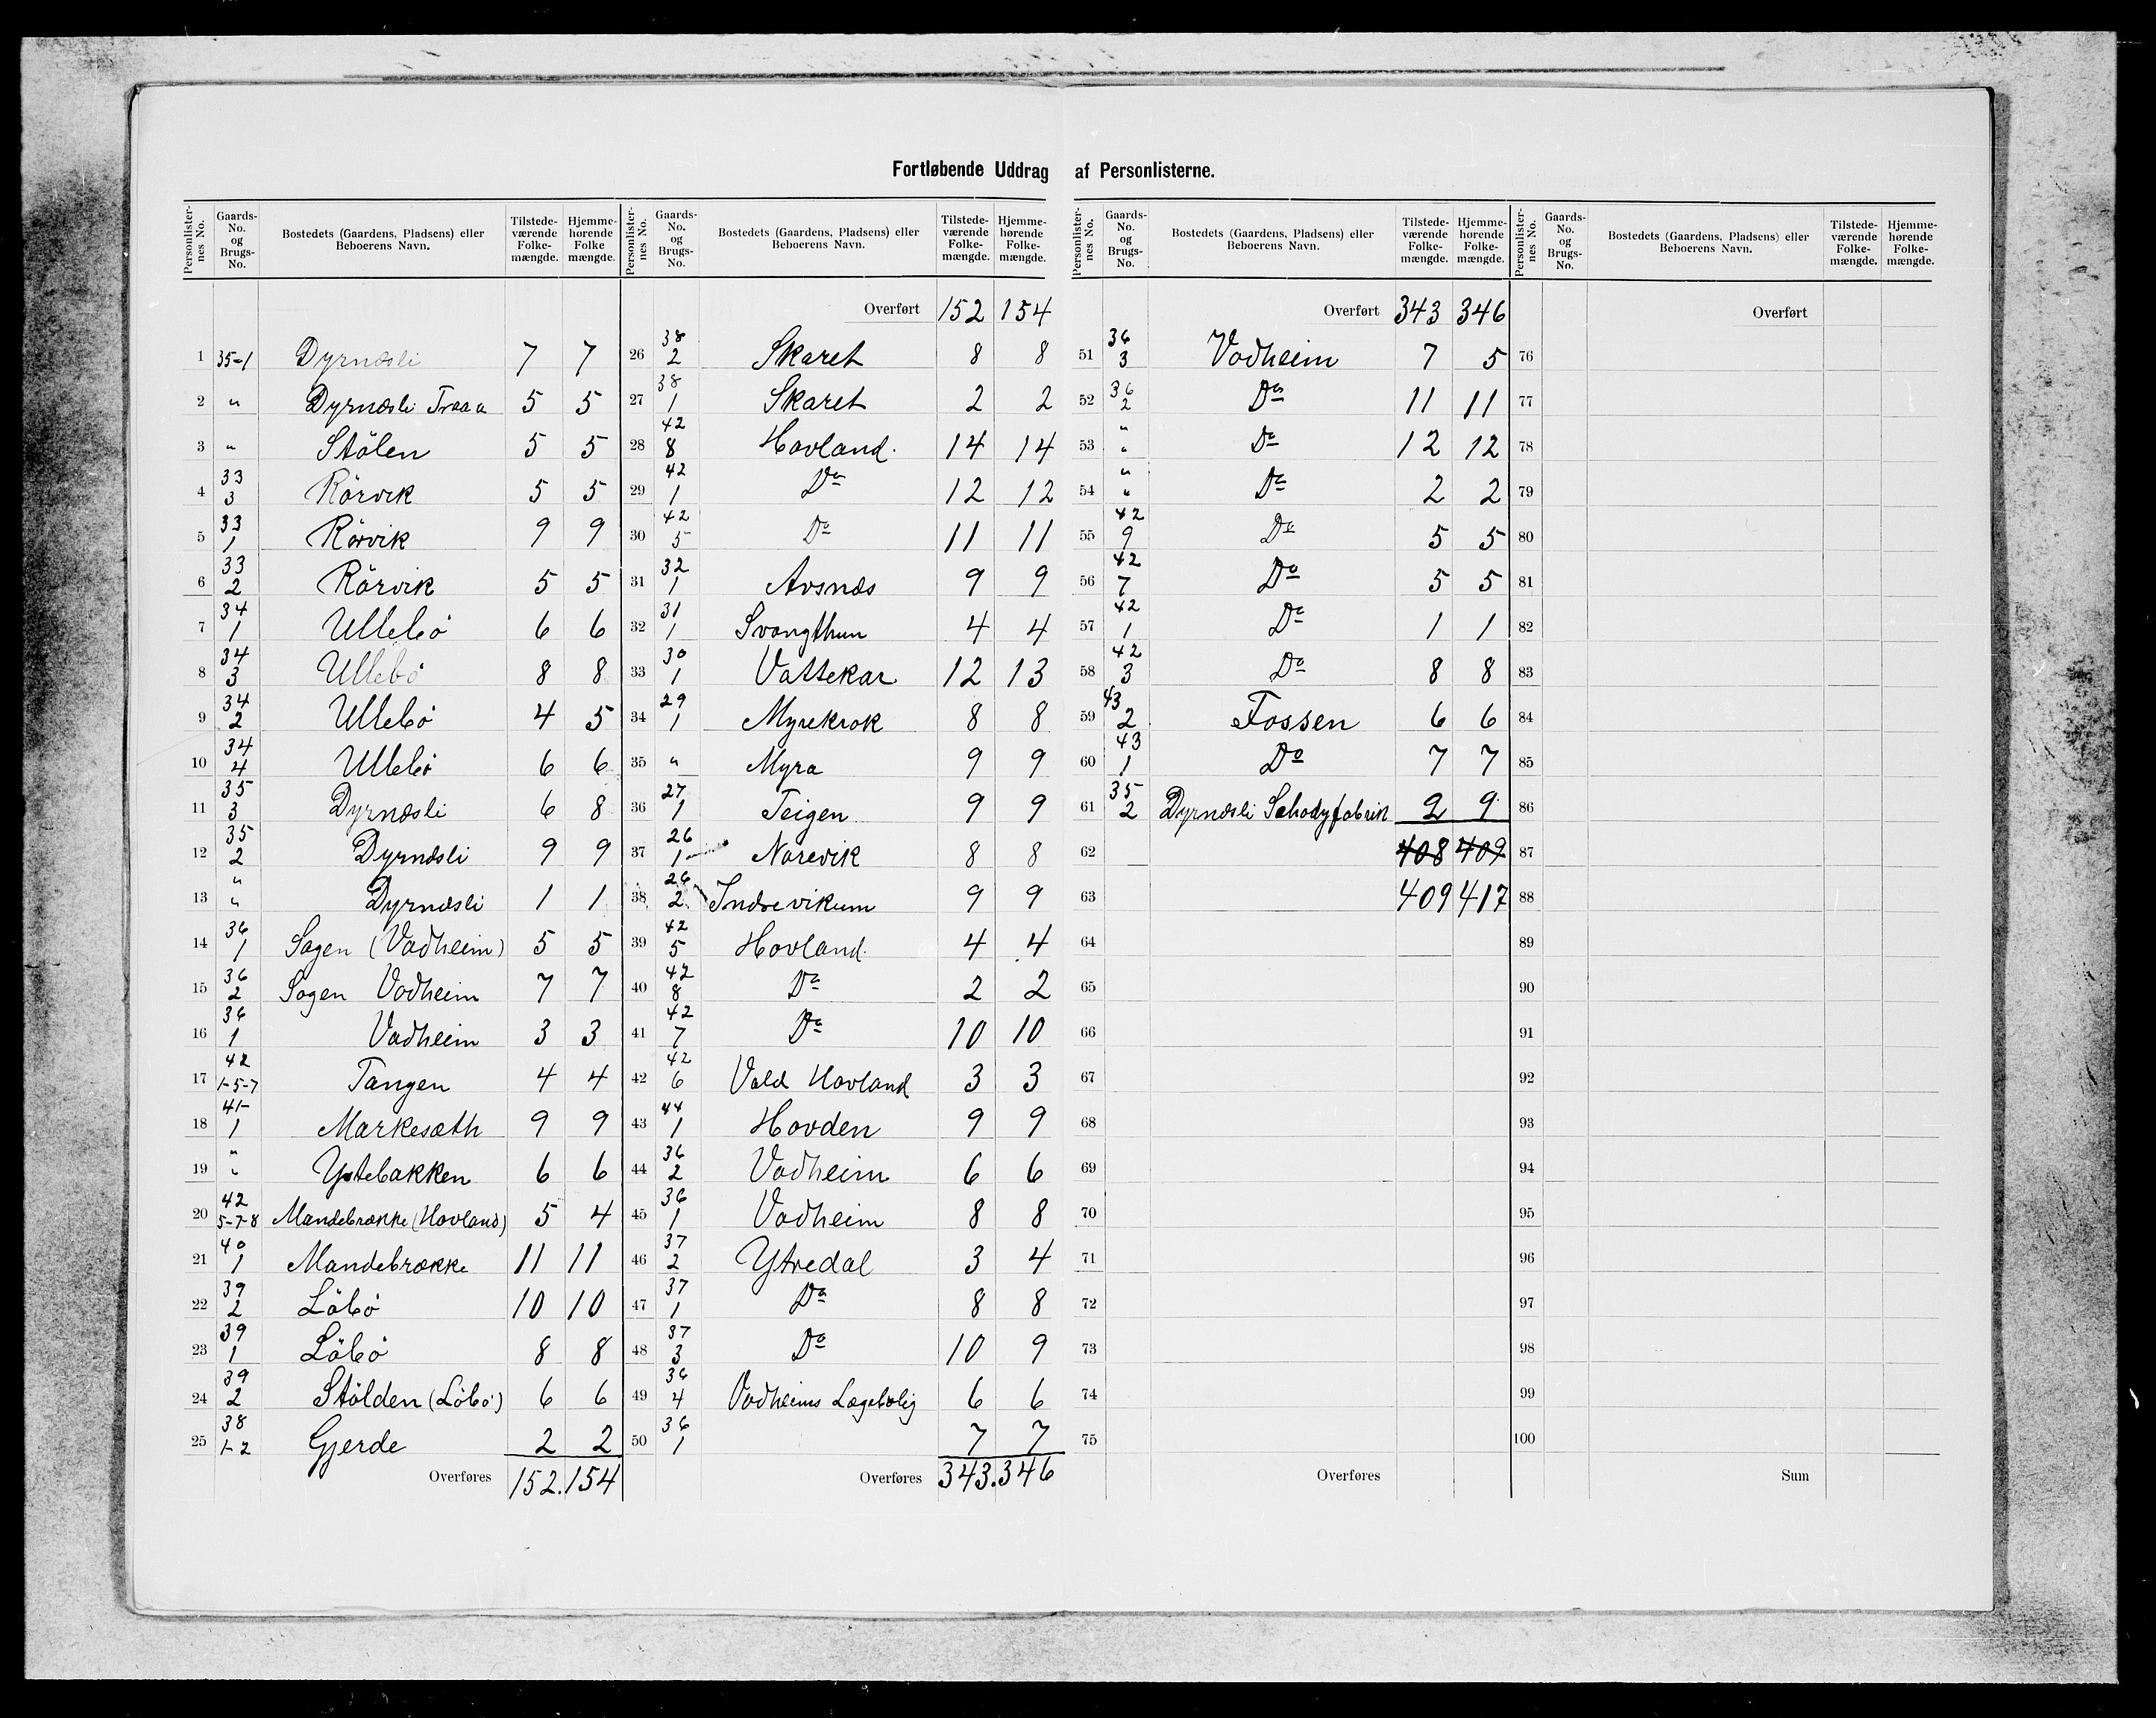 Fortløbende Uddrag af Personlisterne.
Personlisternes No. Gaards-No. og Brugs-No. Bostedets (Gaardens, Pladsens) eller Beboerens Navn. Tilstedeværende Folkemængde. Hjemmehørende Folkemængde.
1 35-1 Dyrnæsli 7 7
2 " Dyrnæsli Traaa 5 5
3 " Stölen 5 5
4 33 3 Rörvik 5 5
5 33 1 Rörvik 9 9
6 33 2 Rörvik 5 5
7 34 1 Ullebö 6 6
8 34 3 Ullebö 8 8
9 34 2 Ullebö 4 5
10 34 4 Ullebö 6 6
11 35 3 Dyrnæsli 6 8
12 35 2 Dyrnæsli 9 9
13 " " Dyrnæsli 1 1
14 36 1 Sagen (Vadheim) 5 5
15 36 2 Sagen Vadheim 7 7
16 36 1 Vadheim 3 3
17 42 1-5-7 Tangen 4 4
18 41- 1 Markesæth 9 9
19 " " Ystebakken 6 6
20 42 5-7-8 Mandebrække (Hovland) 5 4
21 40 1 Mandebrække 11 11
22 39 2 Löbö 10 10
23 39 1 Löbö 8 8
24 39 2 Stölden (Löbö) 6 6
25 38 1-2 Gjerde 2 2
Overføres 152. 154
Overført 152 154
26 38 2 Skaret 8 8
27 38 1 Skaret 2 2
28 42 8 Hovland. 14 14
29 42 1 Do 12 12
30 42 5 Do 11 11
31 32 1 Avsnæs 9 9
32 31 1 Svangthun 4 4
33 30 1 Vattekar 12 13
34 29 1 Myrekrok 8 8
35 " Myra 9 9
36 27 1 Teigen 9 9
37 26 1 Narevik 8 8
38 26 2 Indrevikum 9 9
39 42 5 Hovland. 4 4
40 42 8 Do 2 2
41 42 7 Do 10 10
42 42 6 Vald Hovland 3 3
43 44 1 Hovden 9 9
44 36 2 Vadheim 6 6
45 36 1 Vadheim 8 8
46 37 2 Ytredal 3 4
47 37 1 Do 8 8
48 37 3 Do 10 9
49 36 4 Vadheims Lægebolig 6 6
50 36 1 7 7
Overføres 343. 346
Overført 343 346
51 36 3 Vadheim 7 5
52 36 2 Do 11 11
53 " " Do 12 12
54 " " Do 2 2
55 42 9 Do 5 5
56 42 7 Do 5 5
57 42 1 Do 1 1
58 42 3 Do 8 8
59 43 2 Fossen 6 6
60 43 1 Do 7 7
61 35 2 Dyrnæsli Schodyfabrik 2 9
62 408 409
63 409 417
64
65
66
67
68
69
70
71
72
73
74
75
Overføres
Overført
76
77
78
79
80
81
82
83
84
85
86
87
88
89
90
91
92
93
94
95
96
97
98
99
100
Sum